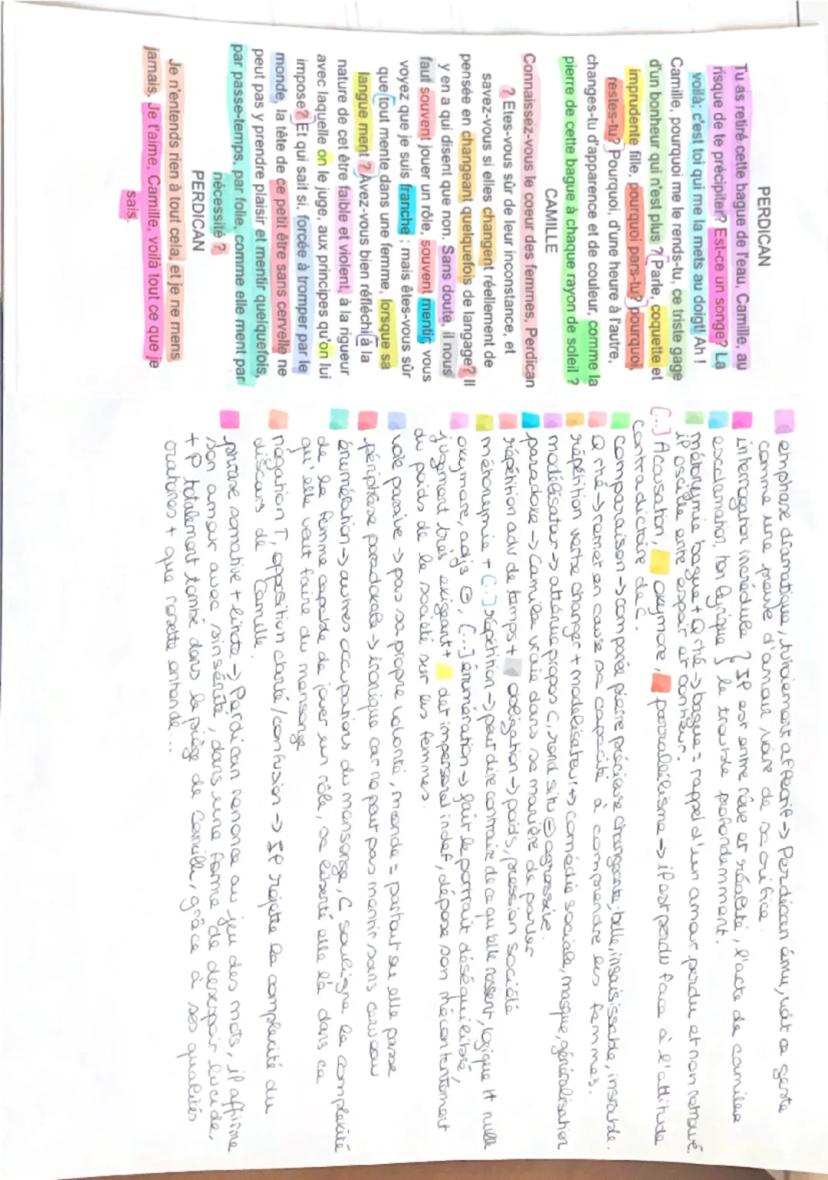 PERDICAN
Tu as retiré cette bague de l'eau, Camille, au
risque de te précipiter? Est-ce un songe? La
voilà; c'est toi qui me la mets au doigt! Ah !
Camille, pourquoi me le rends-tu, ce triste gage
d'un bonheur qui n'est plus ? Parle, coquette et
imprudente fille, pourquoi pars-tu? pourquoi
restes-tu? Pourquoi, d'une heure à l'autre,
changes-tu d'apparence et de couleur, comme la
pierre de cette bague à chaque rayon de soleil ?
CAMILLE
Connaissez-vous le coeur des femmes, Perdican
? Etes-vous sûr de leur inconstance, et
savez-vous si elles changent réellement de
pensée en changeant quelquefois de langage? Il
y en a qui disent que non. Sans doute, il nous
faut souvent jouer un rôle, souvent mentir; vous
voyez que je suis franche ; mais êtes-vous sûr
que tout mente dans une femme, lorsque sa
langue ment ? Avez-vous bien réfléchi à la
nature de cet être faible et violent, à la rigueur
avec laquelle on le juge, aux principes qu'on lui
impose? Et qui sait si, forcée à tromper par le
monde, la tête de ce petit être sans cervelle ne
peut pas y prendre plaisir, et mentir quelquefois,
par passe-temps, par folie, comme elle ment par
nécessité ?
PERDICAN
Je n'entends rien à tout cela, et je ne mens
jamais. Je t'aime, Camille, voilà tout ce que je
sais.
emphase dramatique, tutoiement affectif → Perdican ému, voit ce geste
comme une preuve d'amour voire de sacrifice.
interrogation incrédule } IP est entre rêve et réalité, l'acte de camille
exclamation, ton lyrique } le trouble profondemment.
métonymie bague + Q rhé → bague = rappel d'un amour perdu et non retrouvé.
il oscille entre espoir et bonheur.
[...] Accusation, oxymore, parallélisme → il est perdu face à l'attitude
contradictoire de C.
comparaison → comparée pierre précieuse changeante, belle, insaisissable, instable.
Q rhé → remet en cause sa capacité à comprendre les femmes.
répétition verbe changer + modélisateur → comédie sociale, masque, généralisation
modélisateur → atténue propos C, rend situ ⊖ agressive.
paradoxe → Camille vraie dans sa manière de parler
répétition adv de temps + obligation → poids, pression société
métonymie + [...] répétition → peut dire contraire de ce qu'elle ressent, logique
oxymore, adjs ⊖, [...] énumération → fait le portrait déséquilibré,
jugement trés exigeant + det impersonel indef, dépose son mécontentement
du poids de la société sur les femmes.
voie passive → pas sa propre volonté, monde = partout ou elle passe
périphrase paradoxale → ironique car ne peut pas mentir sans cerveau
énumération → autres occupations du mensonge, C souligne la complexité
de la femme capable de jouer un rôle, sa liberté elle là dans ce
qu'elle veut faire du mensonge
négation T, opposition clarté/confusion → IP rejette la complexité du
discours de Camille.
phrase somative + lente → Perdican renonce au jeu des mots, il affirme
son amour avec sinsérité, dans une forme de desespoir lucide,
+ P totalement tombé dans le piège de Camille, grâce à ses qualités
oratoires + que rosette entende...